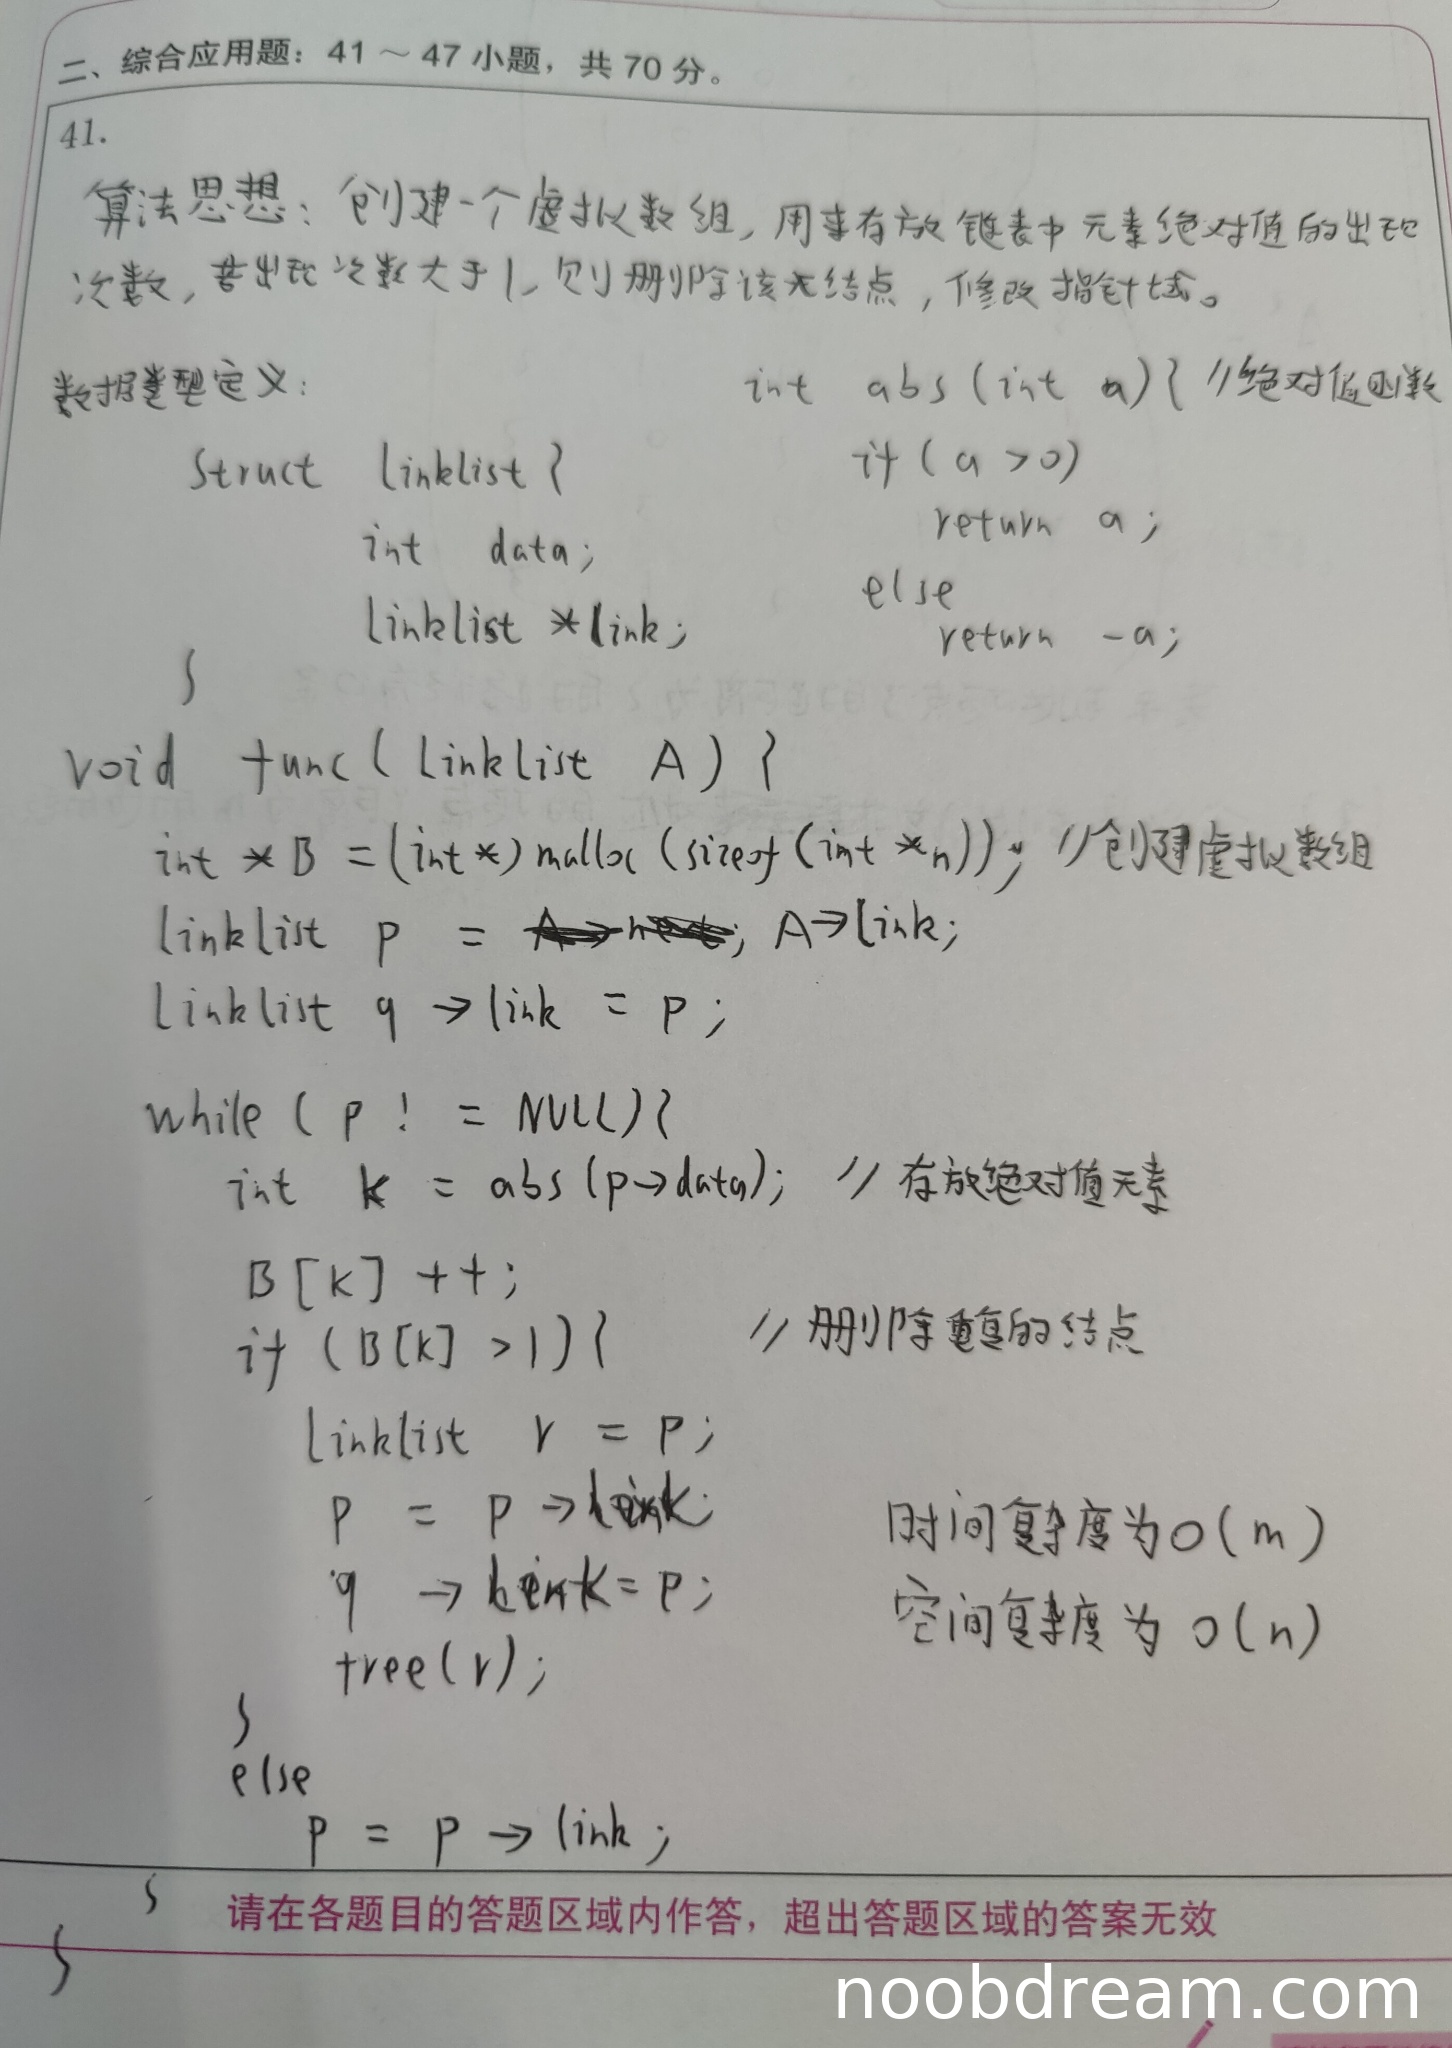 二、综合应用题：41～47小题，共70分。
41.
算法思想：创建一个虚拟数组，用来存放链表中元素绝对值的出现
次数，若出现次数大于1，则删除该结点，修改指针域。
数据类型定义：
struct linklist {
int data;
linklist *link;
}
int abs (int a) { //绝对值函数
if (a > 0)
return a;
else
return -a;
void func (linklist A) {
int *B = (int*) malloc (sizeof (int *n)); //创建虚拟数组
linklist p = A→link;
linklist q → link = p;
while ( p ! = NULL) {
int k = abs (p→data); // 存放绝对值元素
B [k] ++;
if (B[k] >1) { // 删除重复的结点
linklist r = p;
p = p → link;
q → link = p;
free (r);
}
else
p = p → link;
}
}
时间复杂度为O(m)
空间复杂度为O(n)
请在各题目的答题区域内作答，超出答题区域的答案无效
noobdream.com